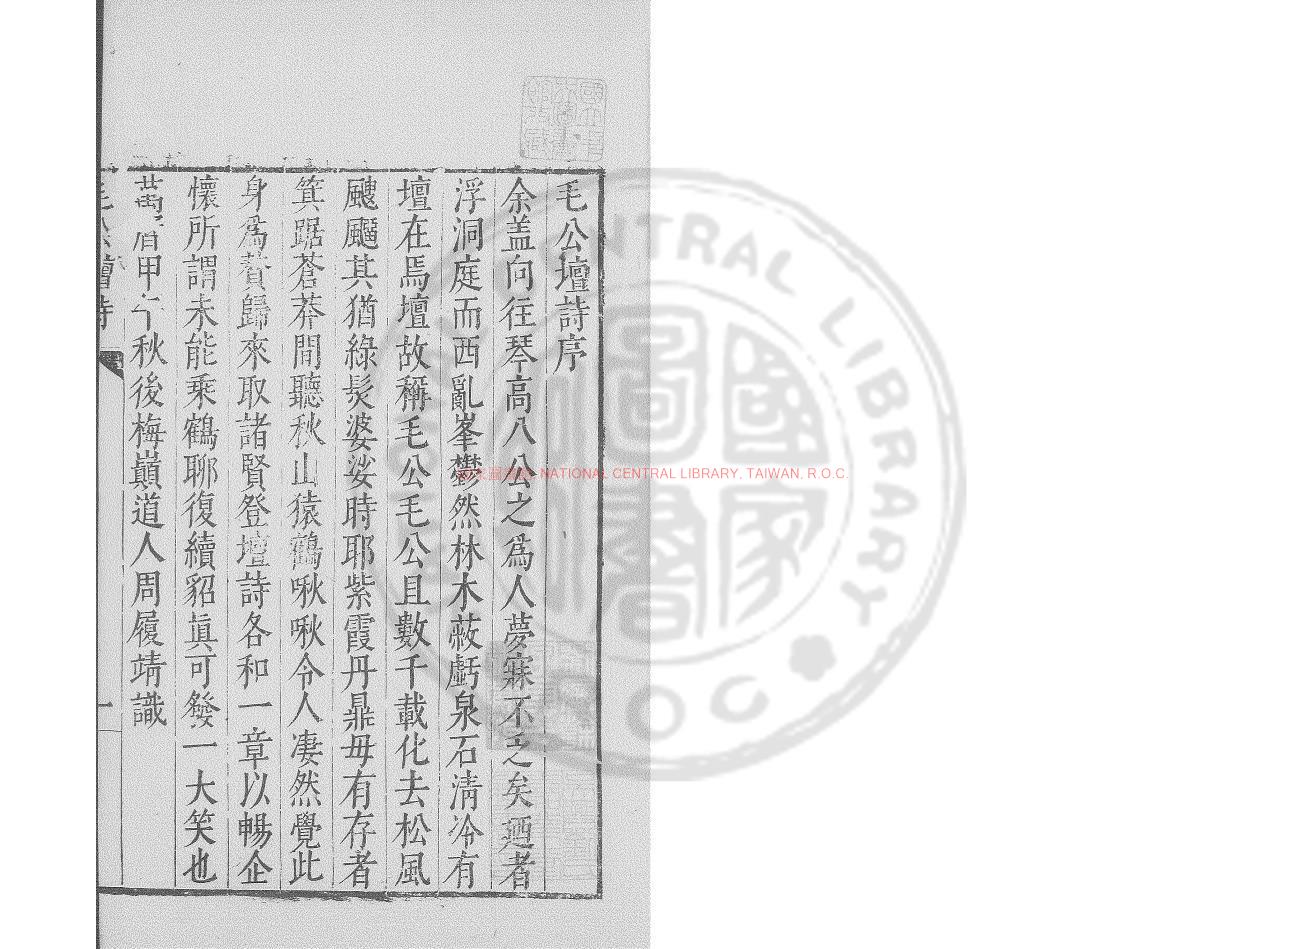 毛公壇詩序
余盖向往琴高八公之爲人夢寐不之矣廼者
浮洞庭而西亂峯鬱然林木蔽虧泉石清冷有
壇在焉壇故稱毛公毛公且數千載化去松風
颼飀其猶綠髮婆娑時耶紫霞丹鼎毋有存者
箕踞蒼莽間聽秋山猿鶴啾啾令人凄然覺此
身爲贅歸來取諸賢登壇詩各和一章以暢企
懷所謂未能乘鶴聊復續貂眞可發一大笑也
萬曆甲午秋後梅巔道人周履靖識
毛公壇詩
一
國家圖書館 NATIONAL CENTRAL LIBRARY, TAIWAN, R.O.C.
CENTRAL LIBRARY
R.O.C.